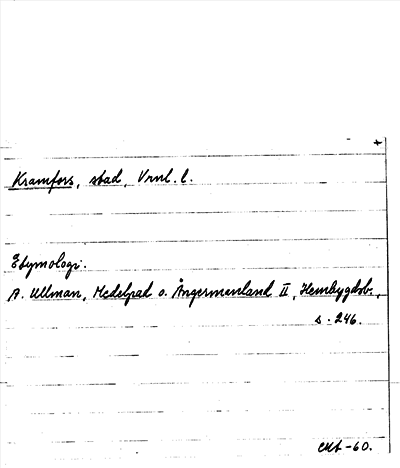 Kramfors, stad, Vrnl. l.
Etymologi.
A. Ullman, Medelpad o. Ångermanland II, Hembygdsb.,
s. 246.
-60.